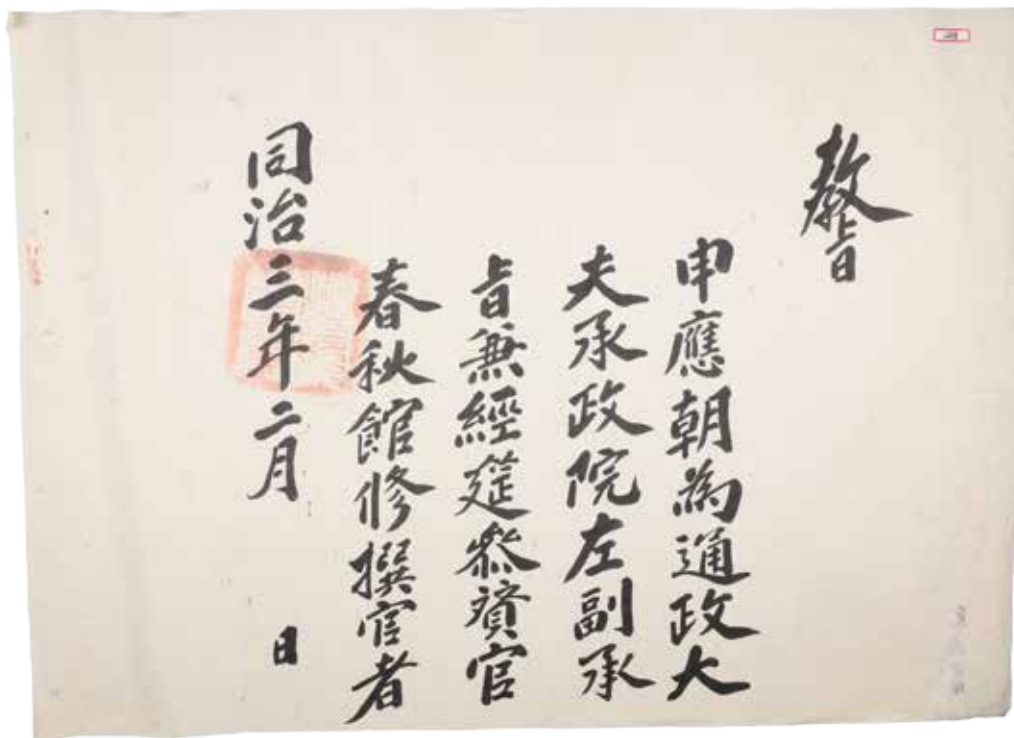 敎旨
申應朝為通政大
夫承政院左副承
旨兼經筵參贊官
春秋館修撰官者
同治三年二月 日